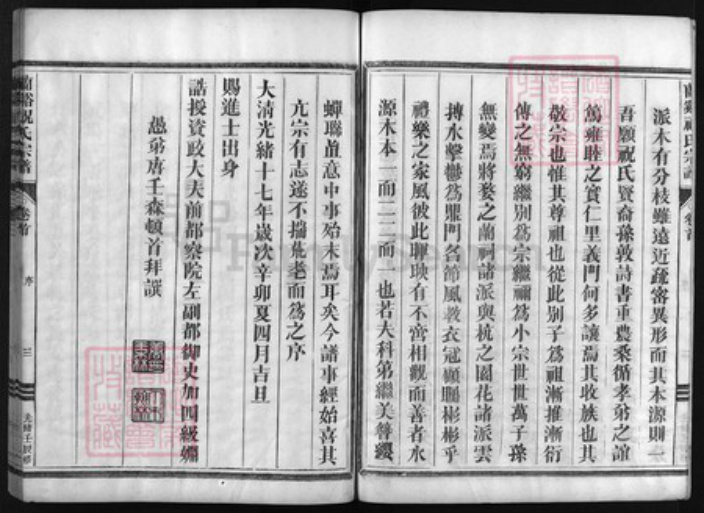 派木有分枝雖遠近疏密異形而其本源則一
吾願祝氏賢裔孫敦詩書重農桑循孝弟之誼
篤雍睦之實仁里義門何多讓焉其收族也其
敬宗也惟其尊祖也從此別子為祖漸推漸衍
傳之無窮繼別為宗繼禰為小宗世世萬子孫
無變焉將婺之蘭祠諸派與杭之園花諸派雲
摶水擊鬱為鼎門名節風教衣冠顒顒彬彬乎
禮樂之家風彼此暉映有不啻相觀而善者水
源木本一而二二而一也若夫科第繼美簪纓
蟬聯直意中事始末焉耳矣今譜事經始喜其
亢宗有志遂不揣荒老而為之序
大清光緒十七年歲次辛卯夏四月吉旦
賜進士出身
誥授資政大夫前都察院左副都御史加四級姻
愚弟唐壬森頓首拜譔
蘭谿祝氏宗譜
卷首
序
三
光緒壬辰修
蘭谿祝氏宗譜
卷首
FamilySearch